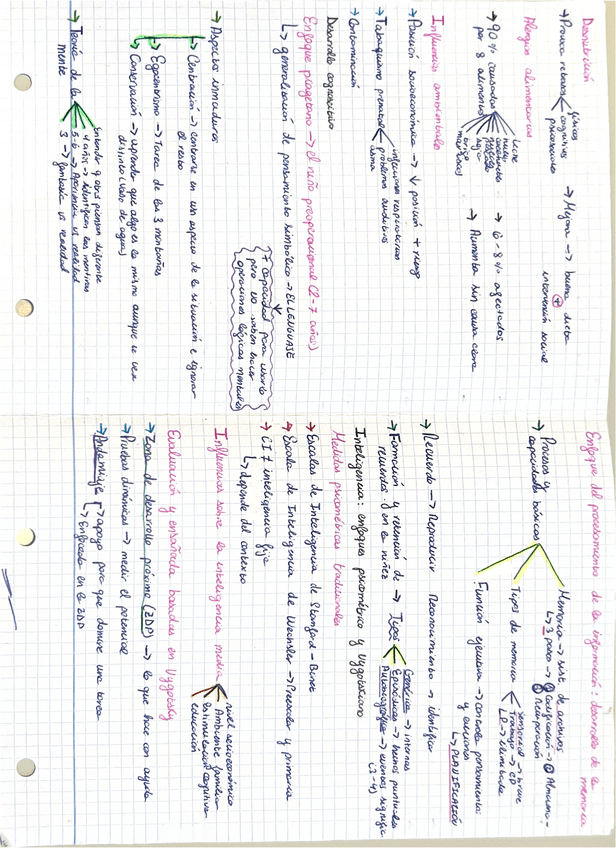 Desnutrición
→ Provoca retrasos físicos
cognitivos
psicosociales
→ Mejora → buena dieta
+
intervención social
Alergias alimentarias
→ 90% causados
por 8 alimentos
leche
huevo
cacahuetes
pescado
soja
trigo
mariscos
→ 6-8% afectados
→ Aumenta sin causa clara
Influencias ambientales
→ Posición socioeconómica → ↓ posición + riesgo
→ Tabaquismo prenatal
infecciones respiratorias
problemas auditivos
asma
→ Contaminación
Desarrollo cognoscitivo
Enfoque piagetano → el niño preoperacional (2-7 años)
↳ generalización de pensamiento simbólico → EL LENGUAJE
+ capacidad para usarlo
pero no saben hacer
operaciones lógicas mentales
→ Aspectos inmaduros
→ Centración → centrarse en un aspecto de la situación e ignorar
el resto
→ Egocentrismo → Tarea de las 3 montañas
→ Conservación → aprender que algo es lo mismo aunque se vea
distinto (vaso de agua)
→ Teoría de la
mente
Entender q otros piensan diferente
4 años → identifican las mentiras
5-6 → Apariencia vs realidad
3 → fantasía vs realidad
Enfoque del procesamiento de la información: desarrollo de la
memoria
→ Procesos y
capacidades básicos
Memoria → sist. de archivos
↳ 3 pasos → ① codificación → ② Almacena-
③ recuperación
Tipos de memoria
sensorial → breve
trabajo → CP
LP → ilimitada
Función ejecutiva → controlar pensamientos
y acciones
↳ PLANIFICACIÓN
→ Recuerdo → Reproducir Reconocimiento → identificar
→ Formación y retención de → Tipos
recuerdos en la niñez
Genérica → internas
Episódicas → hechos puntuales
Autobiográfica → eventos signific.
(3-4)
Inteligencia: enfoques psicométrico y Vygotskiano
Medidas psicométricas tradicionales
→ Escalas de Inteligencia de Stanford-Binet
→ Escala de Inteligencia de Wechsler → Preescolar y primaria
→ CI ≠ inteligencia fija
↳ depende del contexto
Influencias sobre la inteligencia medida
nivel socioeconómico
Ambiente familiar
Estimulación cognitiva
educación
Evaluación y enseñanza basadas en Vygotsky
→ Zona de desarrollo próximo (ZDP) → lo que hace con ayuda
→ Pruebas dinámicas → medir el potencial
→ Andamiaje → apoyo para que domine una tarea
↳ Enfocado en la ZDP